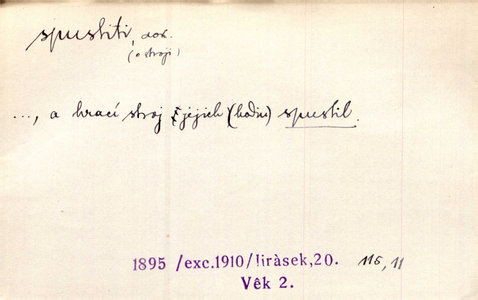 spustiti, dok.
(o stroji)
..., a hrací stroj jejich (hodin) spustil.
1895 /exc.1910/Jiràsek,20. 115, 11
Vêk 2.